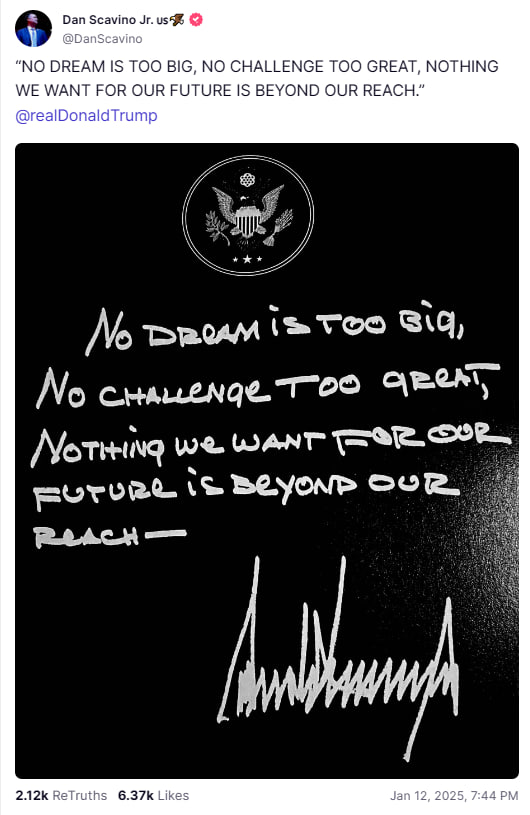 Dan Scavino Jr. us
@DanScavino
“NO DREAM IS TOO BIG, NO CHALLENGE TOO GREAT, NOTHING
WE WANT FOR OUR FUTURE IS BEYOND OUR REACH.”
@realDonaldTrump
No DREAM iS TOO BiG,
No CHALLENGE TOO GREAT,
NOTHING WE WANT FOR OUR
FUTURE iS BEYOND OUR
REACH—
2.12k ReTruths 6.37k Likes Jan 12, 2025, 7:44 PM